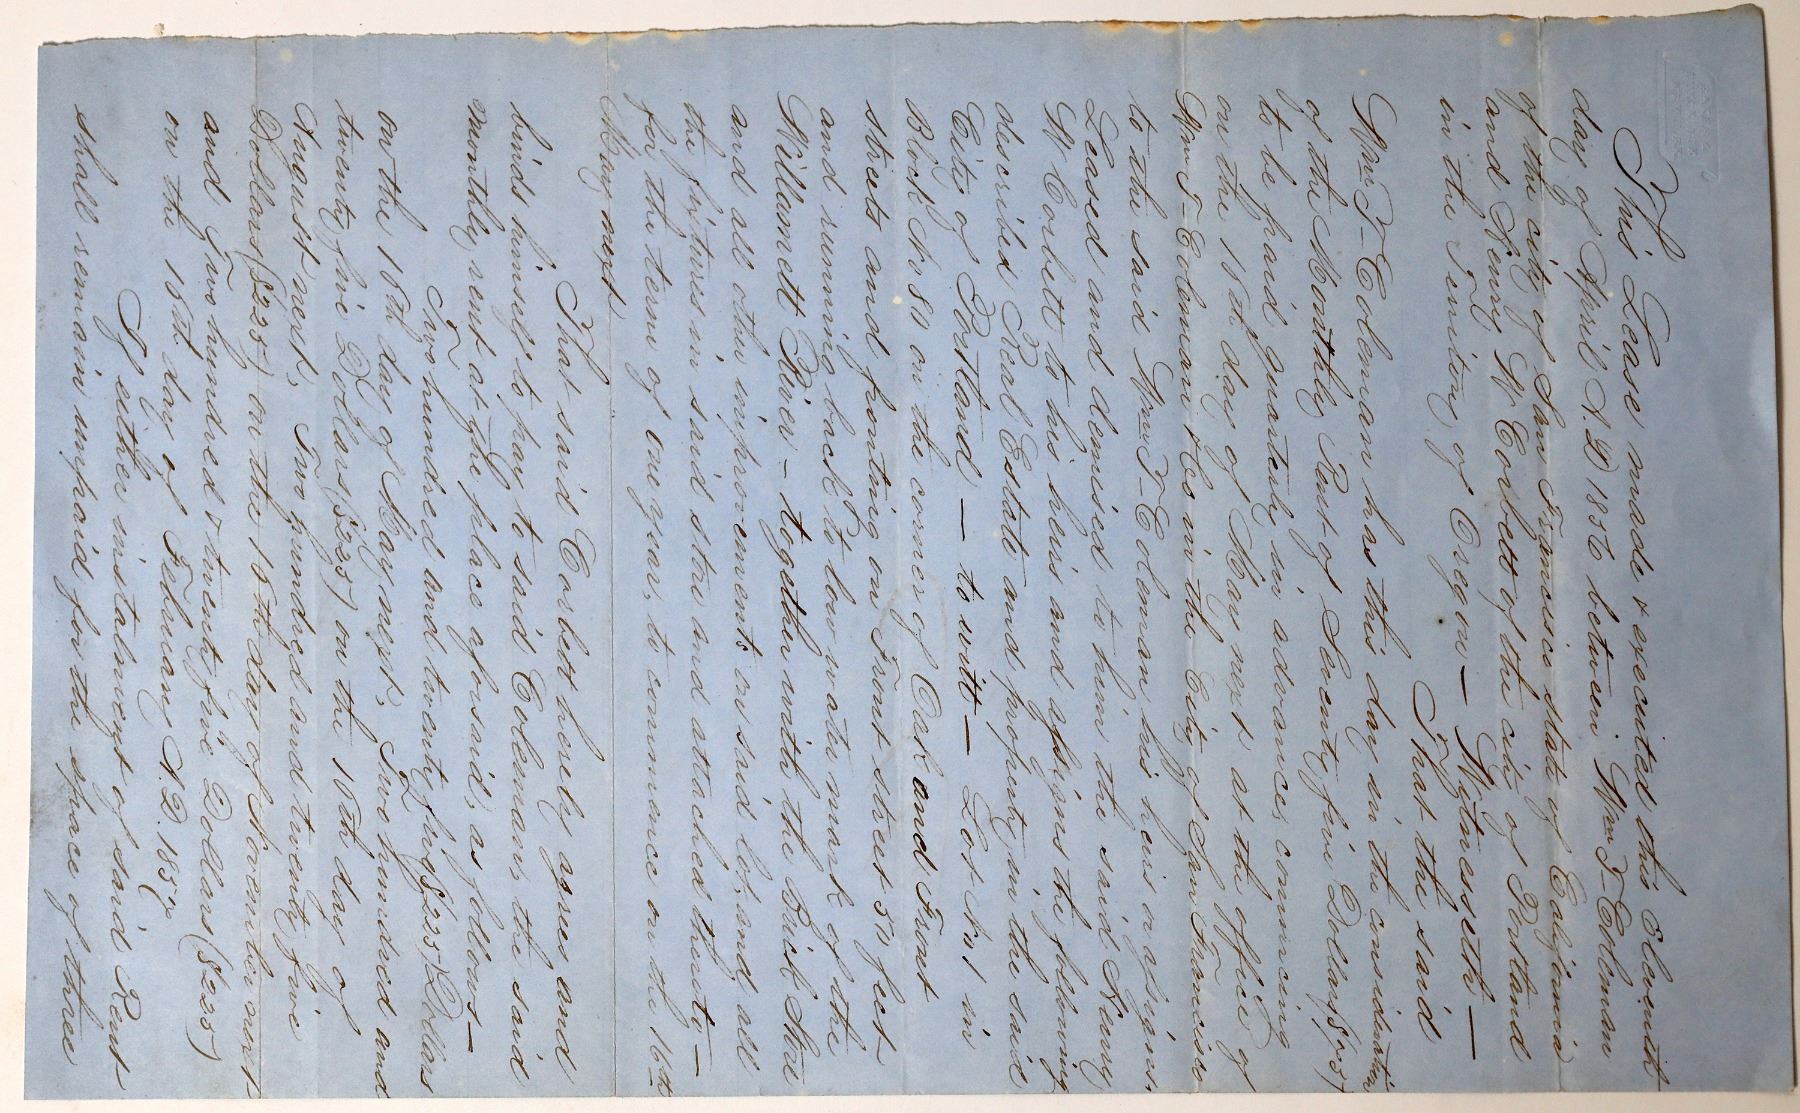 This Lease, made & executed this Eleventh
day of April A.D 1856 between Wm T- Coleman
of the city of San Francisco state of California
and Henry W Corbett of the city of Portland
in the Teritory of Oregon — Witnesseth —
That the said
Wm T- Coleman has this day in the consideration
of the Monthly Rent of Seventy five Dollars ($75)
to be paid quarterly in advance, commencing
on the 16th day of May next at the office of
Wm T- Coleman & Co in the City of San Francisco
to the said Wm T- Coleman his heirs or assigns.
Leased and demised to him the said Henry
W Corbett to his heirs and assigns the following
described Real Estate and property in the said
City of Portland — to witt — Lot No 1 in
Block No 80 on the corner of Oak and Front
streets and fronting on Front street 50 feet
and running back to low water mark of the
Willamett River — together with the Brick Store
and all other improvements on said lot, and all
the fixtures in said store and attached thereto —
for the term of one year, to commence on the 16th
May next.
That said Corbett hereby agrees and
binds himself to pay to said Coleman, the said
Monthly rent at the place aforsaid, as follows —
Two hundred and twenty five ($225) Dollars
on the 16th day of May next, Two hundred and
twenty five Dollars ($225) on the 16th day of
August next, Two hundred and twenty five
Dollars ($225) on the 16th day of November next
and Two hundred & twenty five Dollars ($225)
on the 16th day of February A.D. 1857
If either instalment of said Rent
shall remain unpaid for the space of three